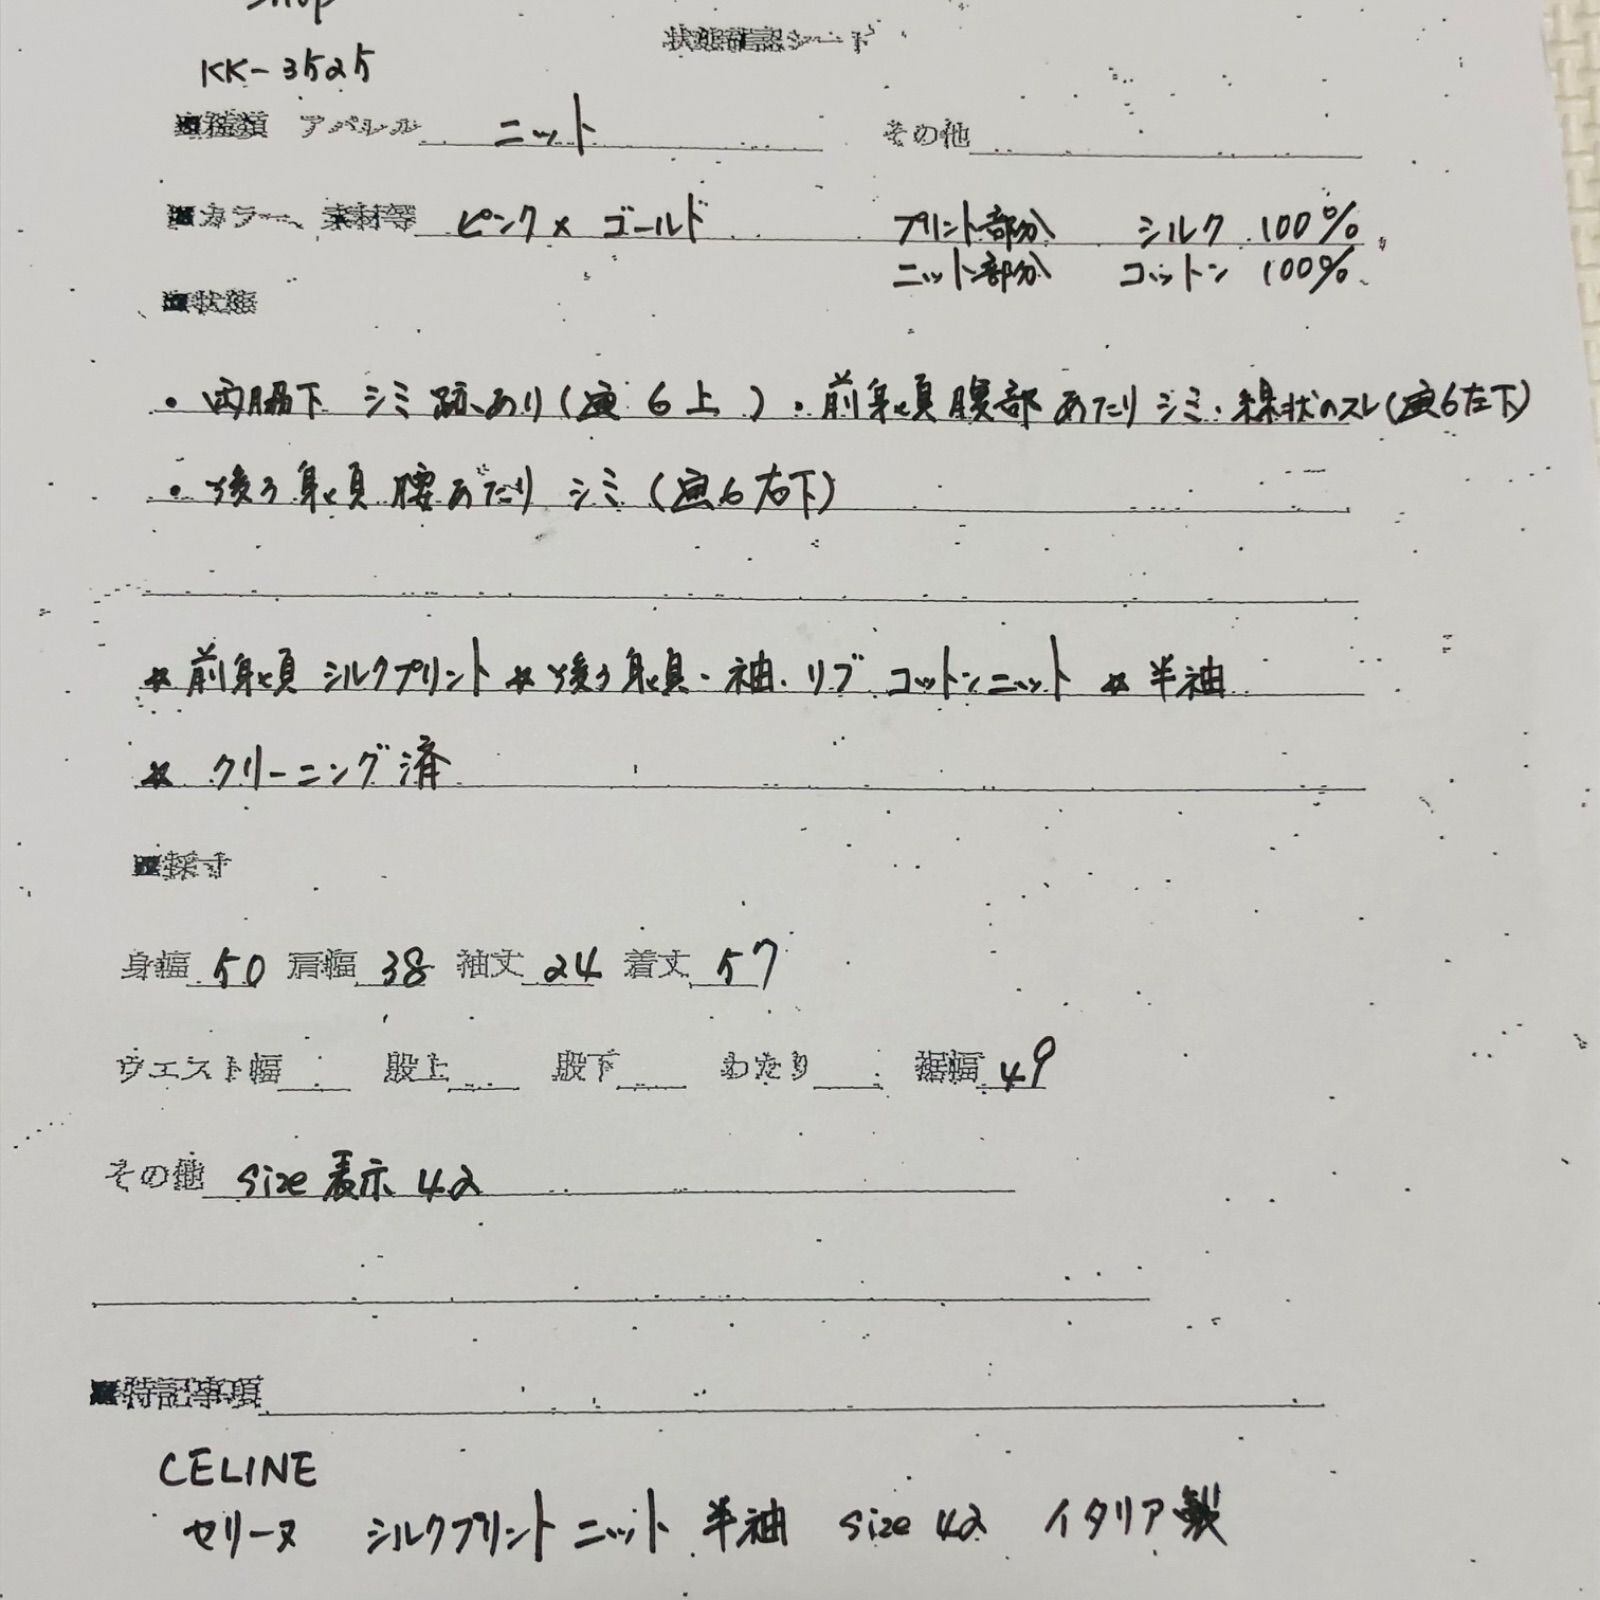 Shop
状態確認シート
KK-3525
■種類 アパレル ニット その他
■カラー、素材等 ピンク×ゴールド プリント部分 シルク 100%
ニット部分 コットン 100%
■状態
・両脇下 シミ跡あり(画6上)・前身頃腹部あたりシミ・線状のスレ(画6左下)
・後ろ身頃腰あたり シミ(画6右下)
*前身頃 シルクプリント *後ろ身頃・袖・リブ コットンニット *半袖
* クリーニング済
■採寸
身幅 50 肩幅 38 袖丈 24 着丈 57
ウエスト幅 股上 股下 わたり 裾幅 49
その他 size表示 42
■特記事項
CELINE
セリーヌ シルクプリント ニット 半袖 size 42 イタリア製